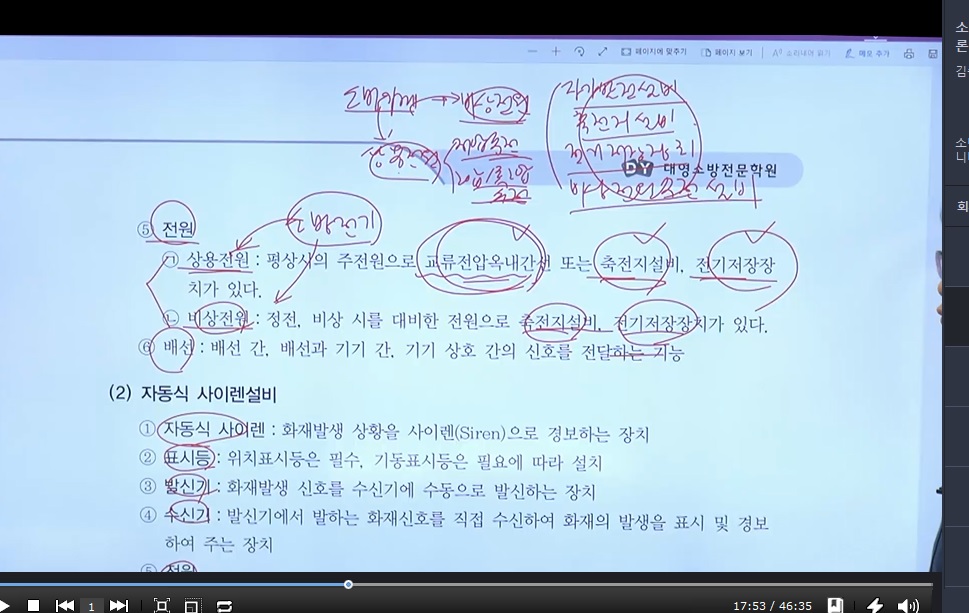 페이지에 맞추기 페이지 보기 소리내어 읽기 메모 추가
소
론
김
소
니
회
소방기계 → 비상전원
상용전원
저압수전
고압/특고압
수전
자가발전설비
축전지설비
전기저장장치
비상전원수전설비
DY 대영소방전문학원
⑤ 전원
소방전기
㉠ 상용전원 : 평상시의 주전원으로 교류전압옥내간선 또는 축전지설비, 전기저장장
치가 있다.
㉡ 비상전원 : 정전, 비상 시를 대비한 전원으로 축전지설비, 전기저장장치가 있다.
⑥ 배선 : 배선 간, 배선과 기기 간, 기기 상호 간의 신호를 전달하는 기능
(2) 자동식 사이렌설비
① 자동식 사이렌 : 화재발생 상황을 사이렌(Siren)으로 경보하는 장치
② 표시등 : 위치표시등은 필수, 기동표시등은 필요에 따라 설치
③ 발신기 : 화재발생 신호를 수신기에 수동으로 발신하는 장치
④ 수신기 : 발신기에서 발하는 화재신호를 직접 수신하여 화재의 발생을 표시 및 경보
하여 주는 장치
⑤ 전원
1
17:53 / 46:35